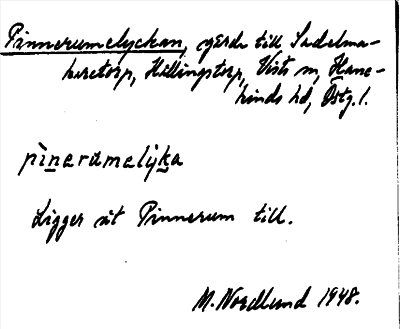 Pinnerumelyckan, gärde till Sadelma-
karetorp, Hällingstorp, Vists sn, Hane-
kinds hd, Östg. l.
pìnerumelỳka
Ligger åt Pinnerum till.
M. Nordlund 1948.